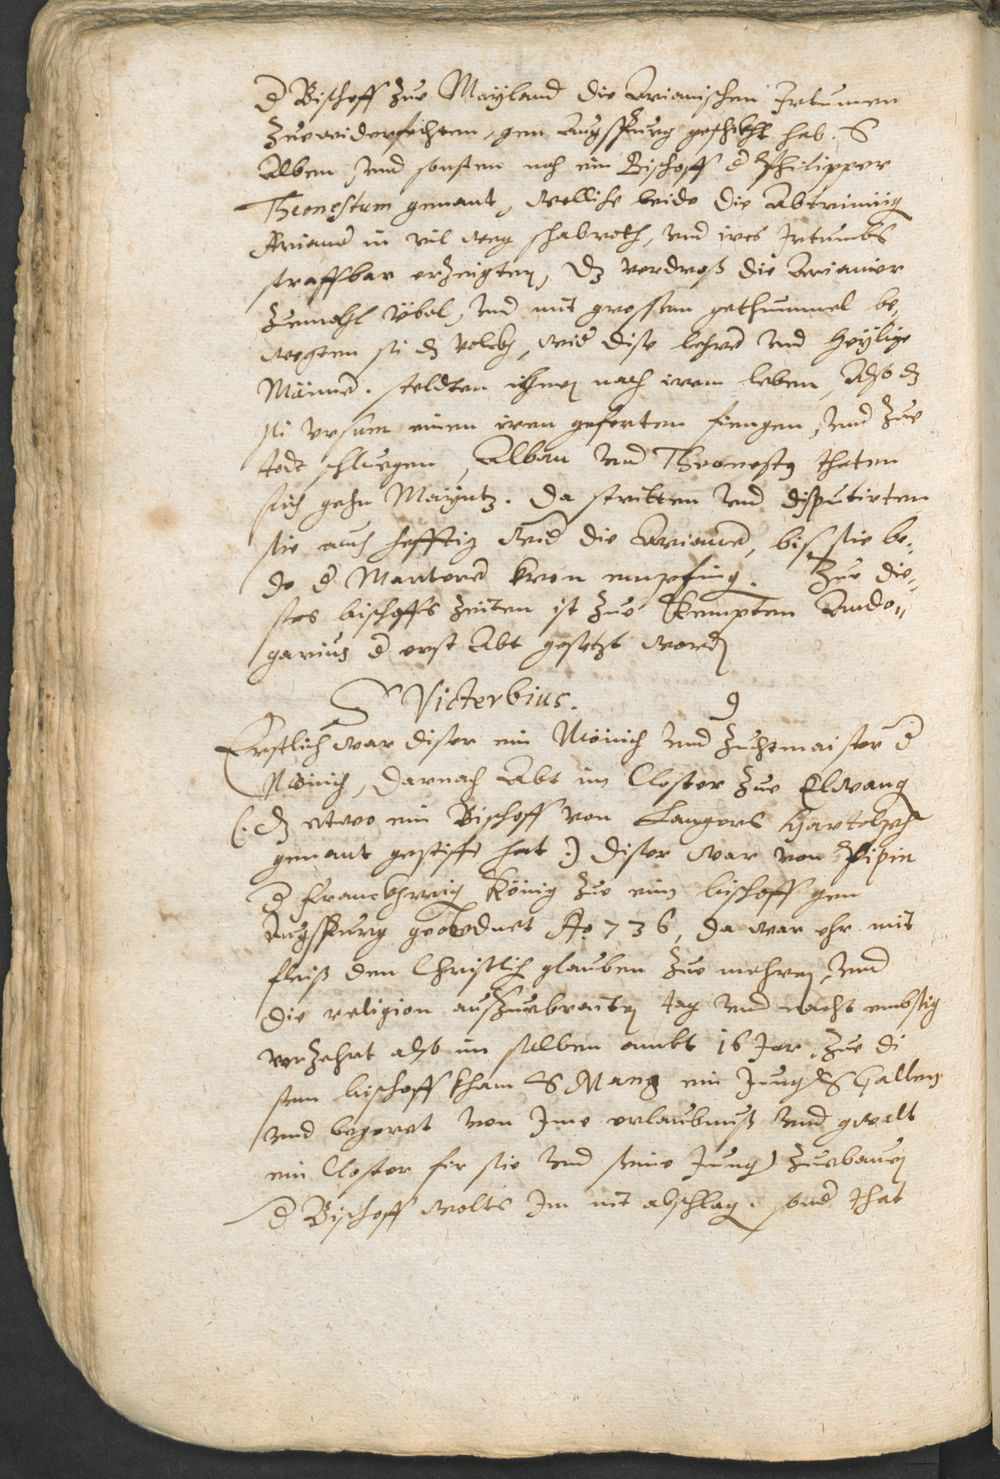 d Bischoff zue Mayland die Arianischen Irtumen
zuewiderfechten, gen Augspurg geschikht hab. S
Alben vnd sonsten noch ein Bischoff d Philipper
Theonestum genant, welliche beide die Abtrinnig
Arianer in vil weg, vnd ires Irtumbs
straffbar erzeigten, dz verdroß die Arianier
zumahl übel, vnd mit grossem gethummel be
wegten si dz volckh, wid dise lehrer vnd heylige
Männer. steldten ihnen nach irem leben, Also dz
si Vrsum einen iren geferten fiengen, vnd zue
todt schluegen, Alban vnd Theonesty theten
sich gehn Mayntz. Da stritten vnd disputirten
sie auch hefftig wid die Arianer, biß sie be„
de d Marterer kron empfing. Zue die„
ses bischoffs zeiten ist zue Kempten Ando„
garius d erst Abt gesetzt worden
S Victerbius. 9
Erstlich war diser ein Mönich vnd zuchtmaister d
Mönich, darnach Abt im Closter zue Elwang
(. dz etwo ein Bischoff von Langers
genant gestifft hat :) diser war von Pipin
d Franckhreich König zue eim bischoff gen
Augspurg geordnet Ao 736, da war ehr mit
fleiß den Christlich glauben zue mehren, vnd
die religion außzuebraiten tag vnd nacht embsig
verzehrt also im selben ambt 16 Jar, Zue di
sem bischoff kham S Mang ein Jung S Gallen
vnd begeret von Jme erlaubnuß vnd gewalt
ein Closter fir sie vnd seine Jung) zuebauen
d Bischoff wolts Im nit abschlag. sond that